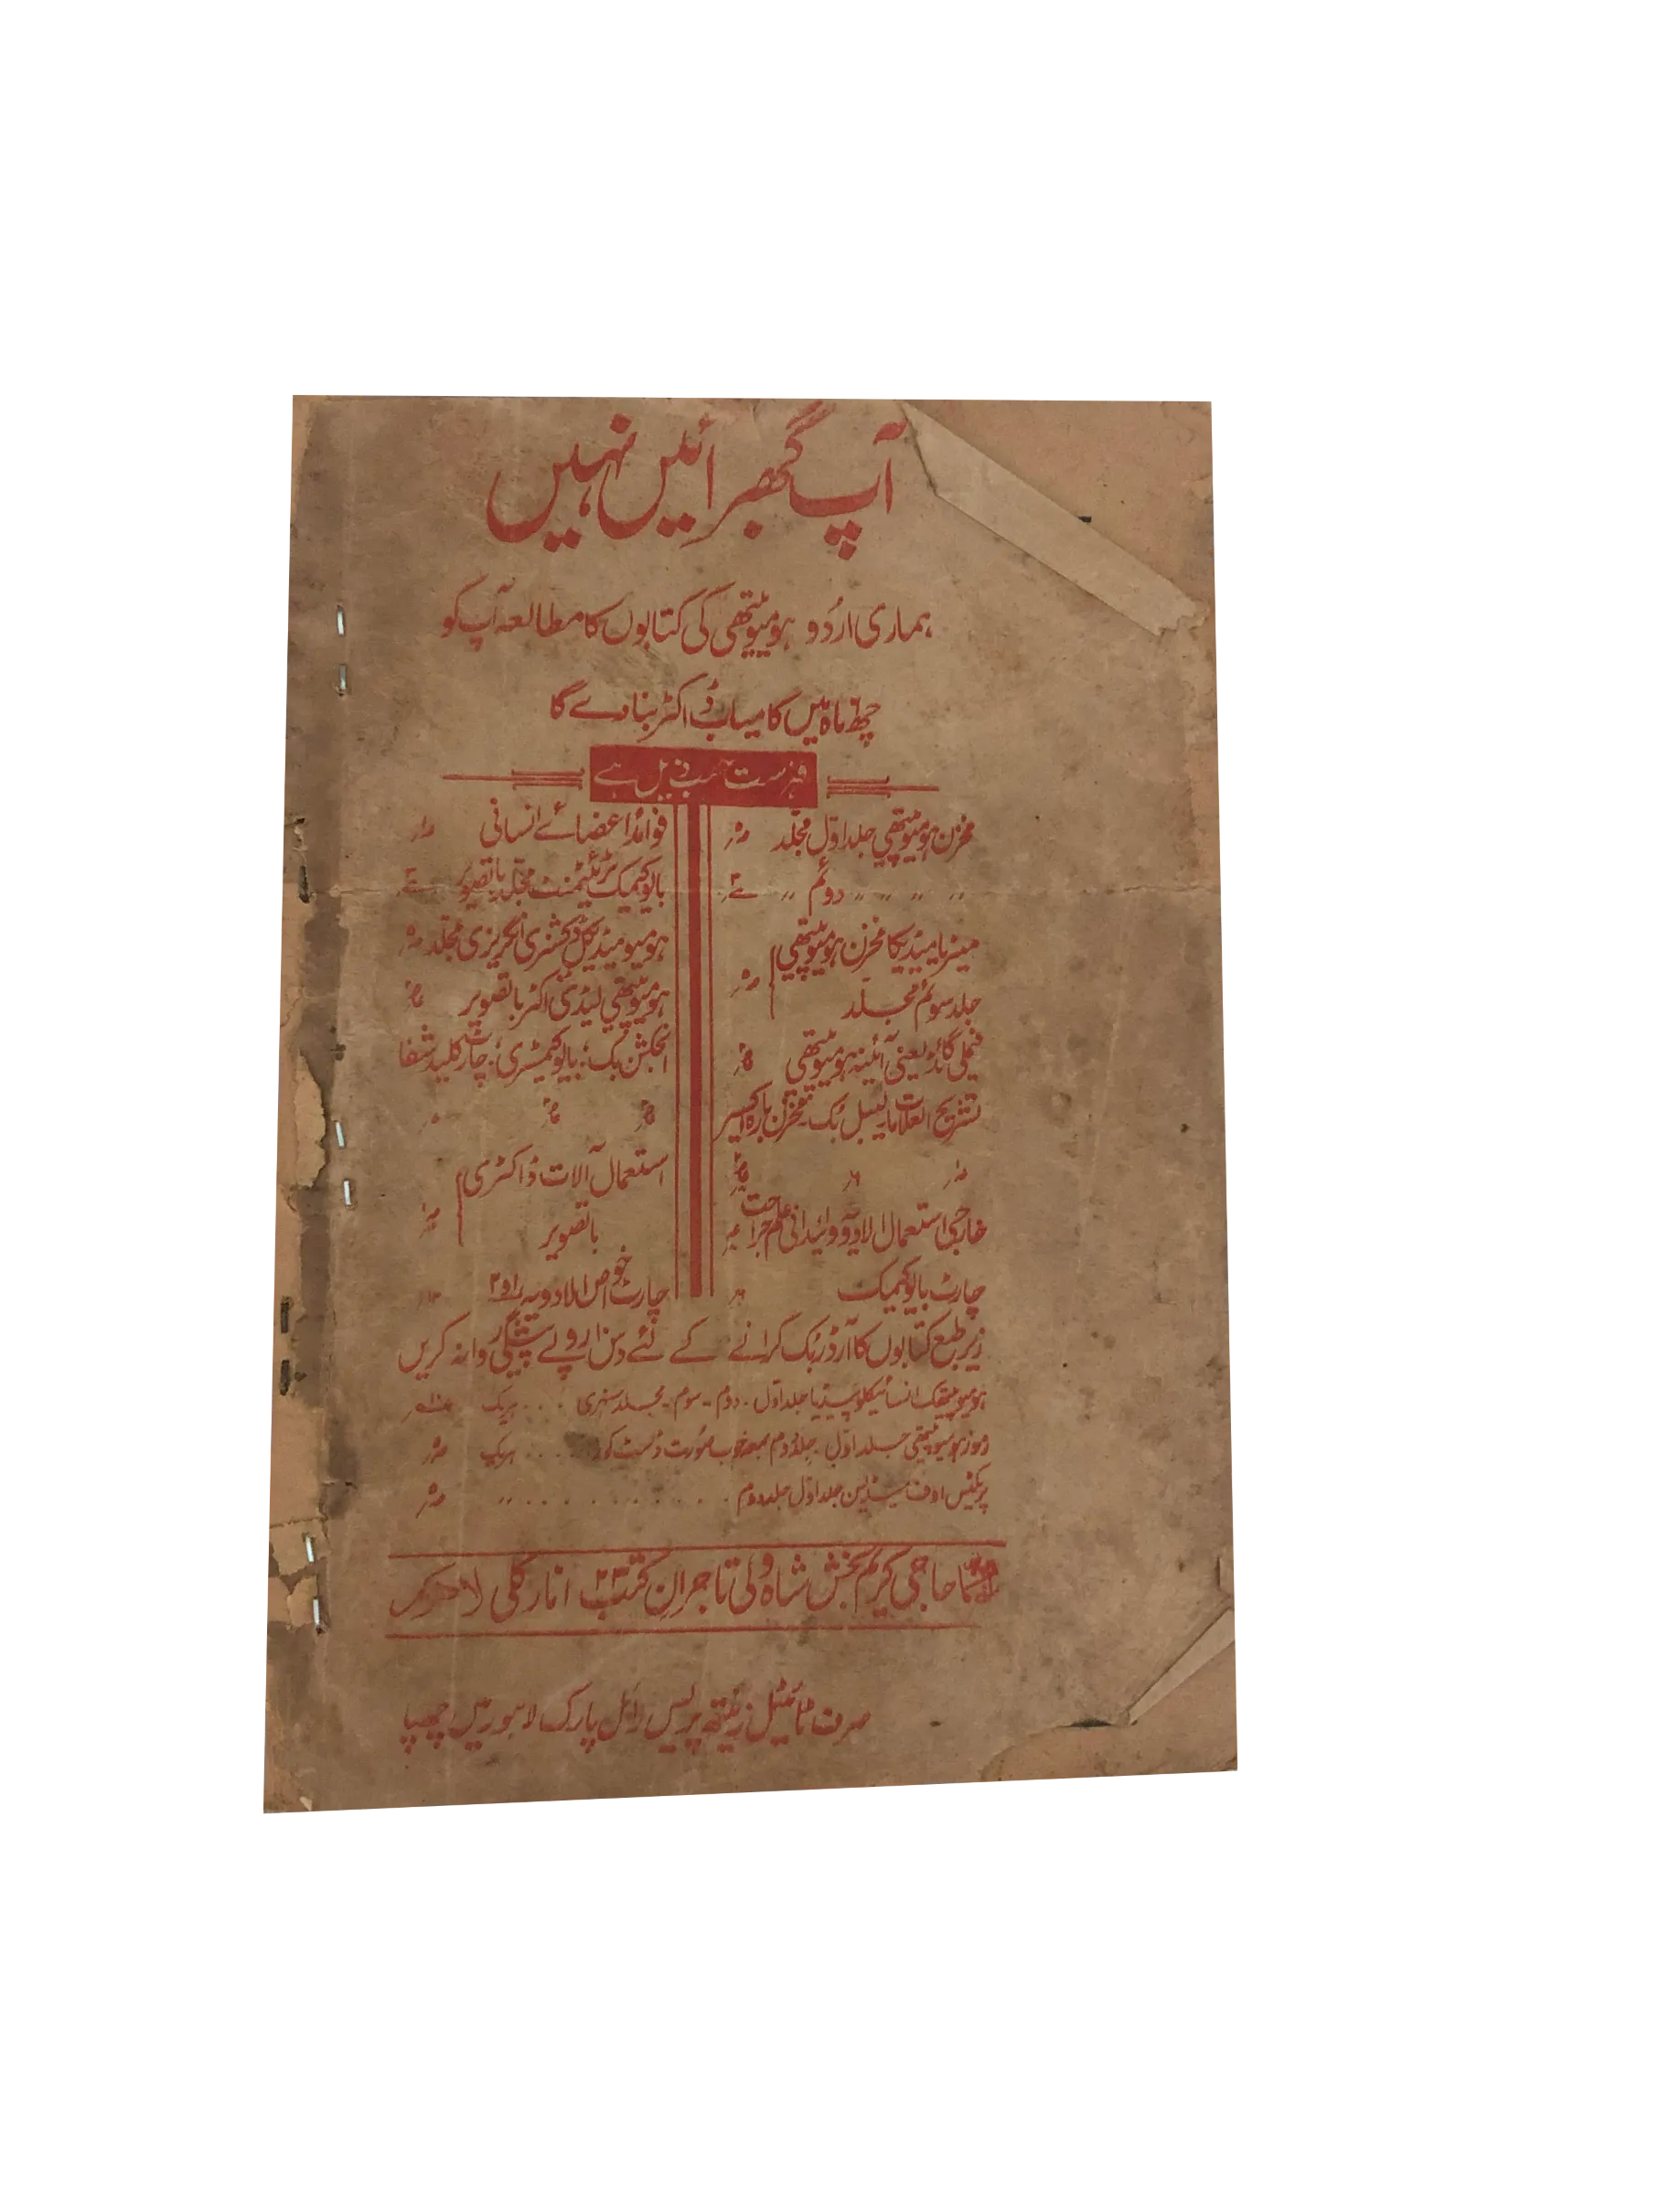 آپ گھبرائیں نہیں
ہماری اردو ہومیوپیتھی کی کتابوں کا مطالعہ آپ کو
چھ ماہ میں کامیاب ڈاکٹر بنا دے گا
فہرست حسب ذیل ہے
مخزن ہومیوپیتھی جلد اوّل مجلّد
〃 〃 〃 〃 دوئم 〃
میٹریا میڈیکا مخزن ہومیوپیتھی
جلد سوئم مجلّد
فیملی گائڈ یعنی آئینہ ہومیوپیتھی
تشریح العلامات لیبل بُک مخزن بارہ اکسیر
خارجی استعمال الادویہ ولیڈانی علم جراحت
چارٹ بایوکیمیک
فوائد اعضائے انسانی
بایوکیمیک ٹریٹمنٹ مجلّد باتصویر
ہومیو میڈیکل ڈکشنری انگریزی مجلّد
ہومیوپیتھی لیڈی ڈاکٹر باتصویر
انجکشن بک؛ بایوکیمسٹری؛ چارٹ کلید شفا
استعمال آلات ڈاکٹری
باتصویر
چارٹ خواص الادویہ ۱و۲
زیر طبع کتابوں کا آرڈر بُک کرانے کے لئے دس روپے پیشگی روانہ کریں
ہومیوپیتھک انسائیکلوپیڈیا جلد اوّل - دوم - سوم - مجلد سنہری .... ہریک
رموز ہومیوپیتھی جلد اوّل جلد دوم بمعہ خوب صورت ڈسٹ کور .... ہریک
پریکٹس اوف میڈیسن جلد اوّل جلد دوم .......... 〃
حاجی کریم بخش شاہ ولی تاجران کتب ۲۳ انارکلی لاہور
صرف ٹائیٹل پریس رائل پارک لاہور میں چھپا